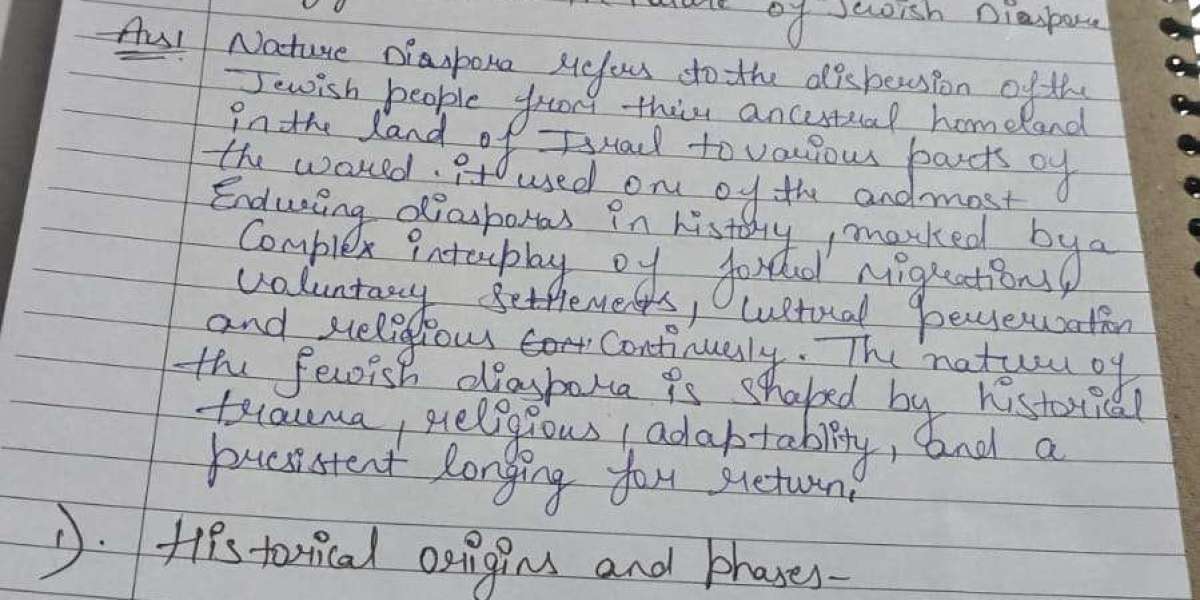 of Jewish Diaspora
Ans! Nature Diaspora refers to the dispersion of the
Jewish people from their ancestral homeland
in the land of Israel to various parts of
the world. it used one of the and most
Enduring diasporas in history, marked by a
Complex interplay of forced migrations,
voluntary settlements, cultural perservation
and religious Continuesly. The nature of
the Jewish diaspora is shaped by historical
trauma, religious, adaptablity, and a
presistent longing for return.
1). Historical origins and phases-